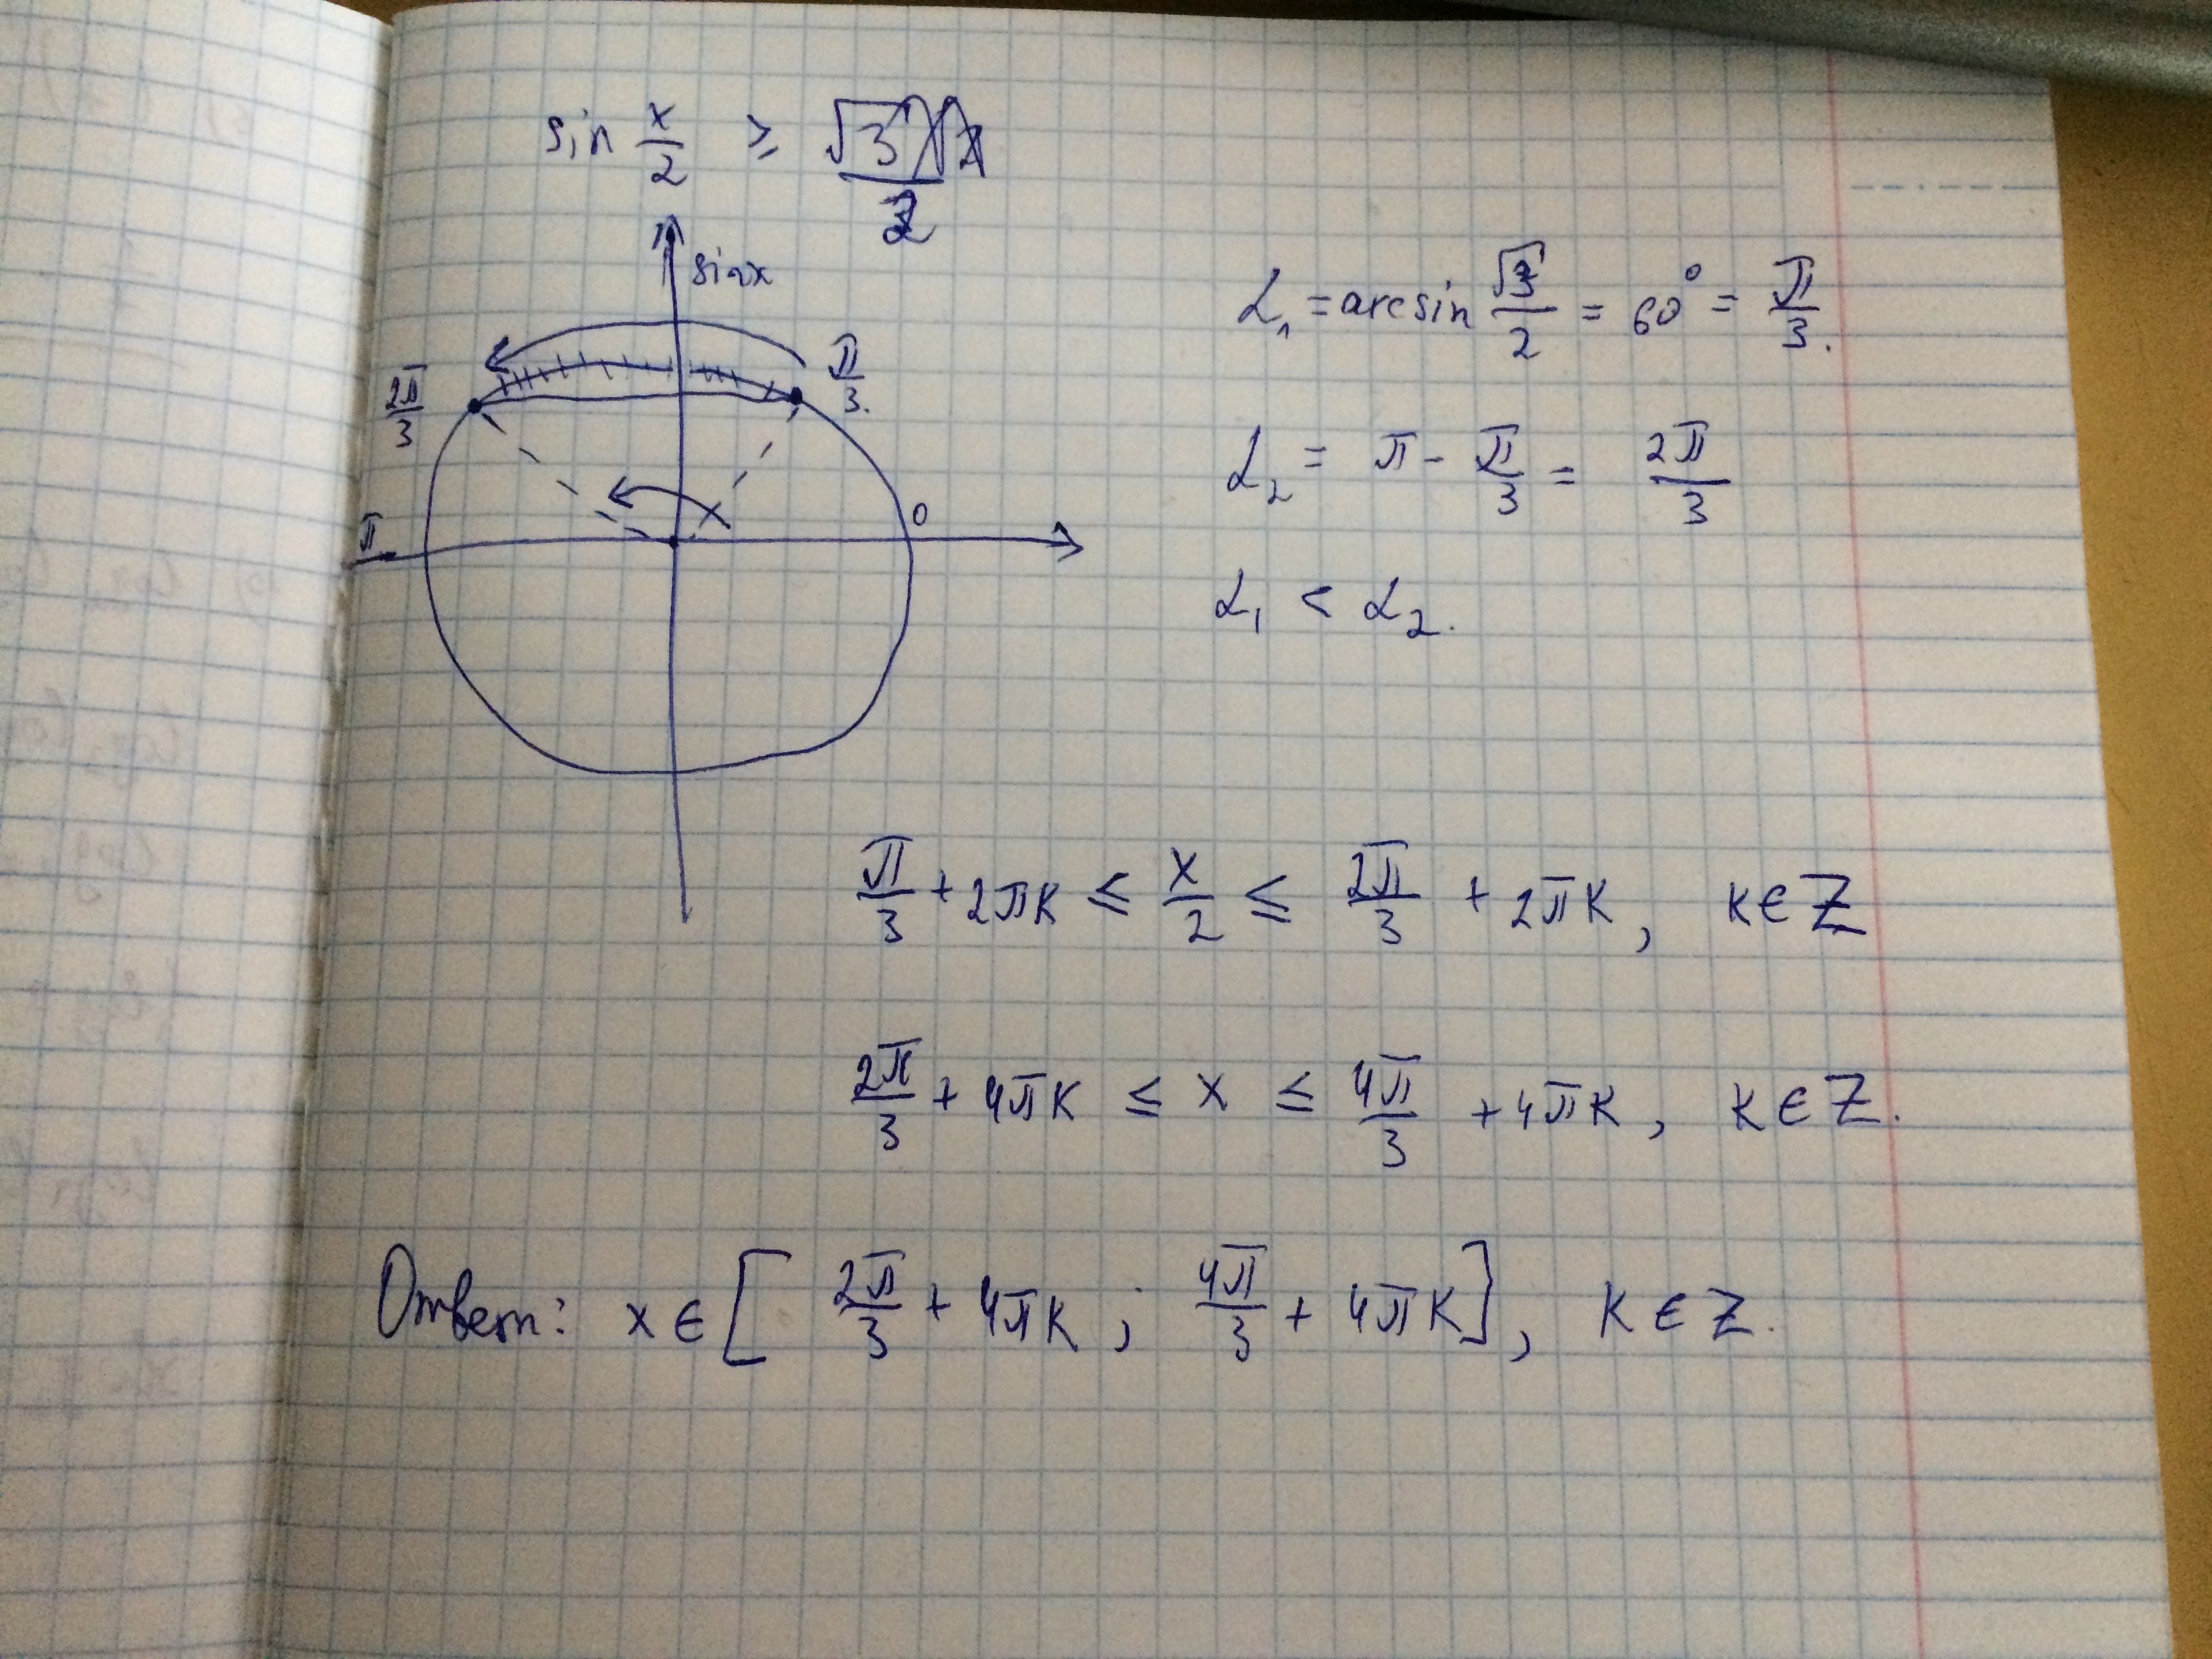 sin x/2 ≥ √3/2
sin x
α₁ = arcsin √3/2 = 60° = π/3.
2π/3
π/3.
α₂ = π - π/3 = 2π/3
π
0
α₁ < α₂.
π/3 + 2πk ≤ x/2 ≤ 2π/3 + 2πk, k∈Z
2π/3 + 4πk ≤ x ≤ 4π/3 + 4πk, k∈Z.
Ответ: x∈[2π/3 + 4πk ; 4π/3 + 4πk], k∈Z.